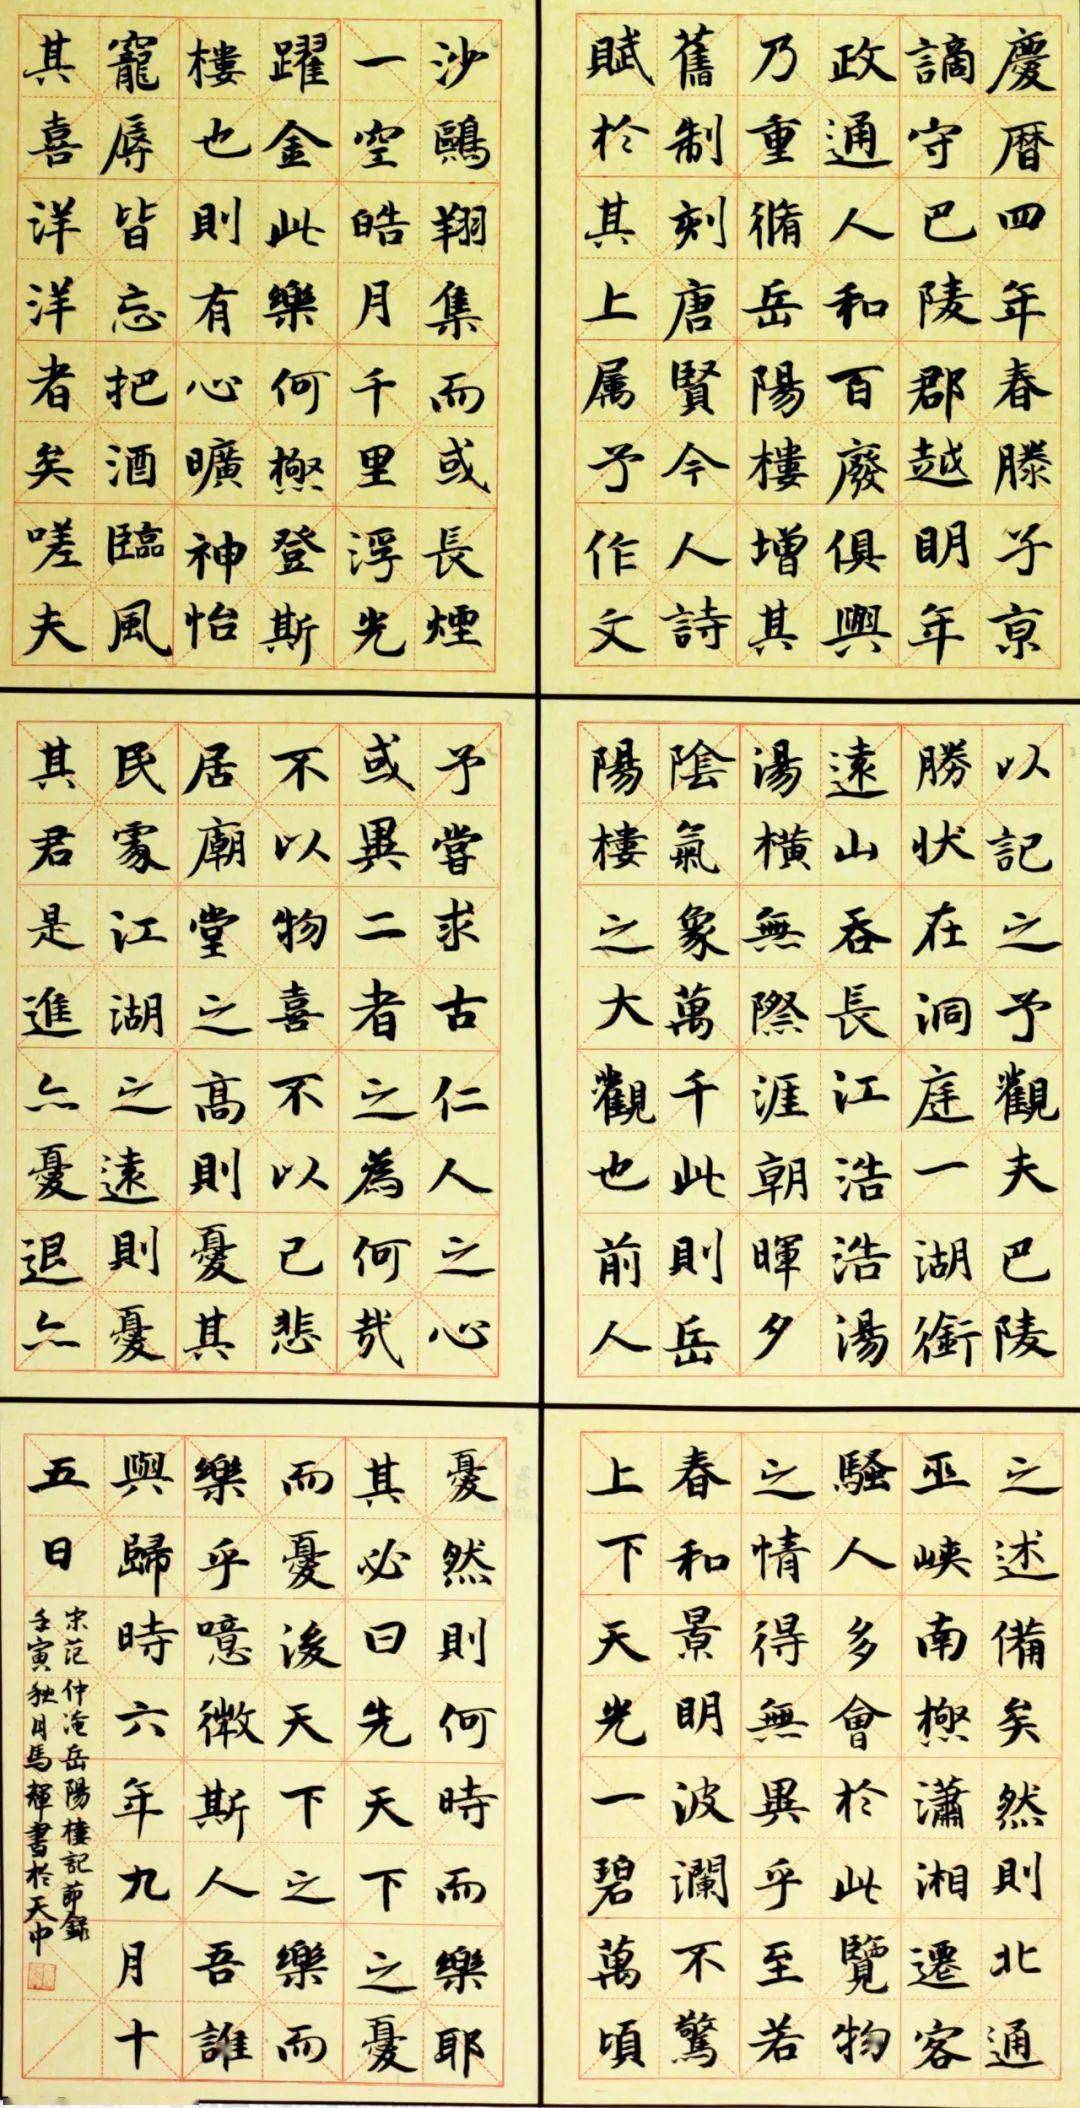 慶暦四年春滕子京
謫守巴陵郡越明年
政通人和百廢俱興
乃重脩岳陽樓增其
舊制刻唐賢今人詩
賦於其上属予作文
以記之予觀夫巴陵
勝状在洞庭一湖銜
遠山吞長江浩浩湯
湯橫無際涯朝暉夕
陰氣象萬千此則岳
陽樓之大觀也前人
之述備矣然則北通
巫峽南極瀟湘遷客
騷人多會於此覽物
之情得無異乎至若
春和景明波瀾不驚
上下天光一碧萬頃
沙鷗翔集而或長煙
一空皓月千里浮光
躍金此樂何極登斯
樓也則有心曠神怡
寵辱皆忘把酒臨風
其喜洋洋者矣嗟夫
予嘗求古仁人之心
或異二者之為何哉
不以物喜不以己悲
居廟堂之高則憂其
民處江湖之遠則憂
其君是進亦憂退亦
憂然則何時而樂耶
其必曰先天下之憂
而憂後天下之樂而
樂乎噫微斯人吾誰
與歸時六年九月十
五日
宋范仲淹岳陽樓記節錄
壬寅秋月馬輝書於天中